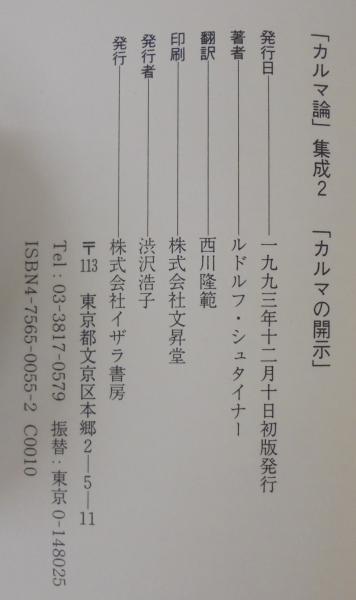 「カルマ論」集成2　「カルマの開示」
発行日――――一九九三年十二月十日初版発行
著者――――ルドルフ・シュタイナー
翻訳――――西川隆範
印刷――――株式会社文昇堂
発行者――――渋沢浩子
発行――――株式会社イザラ書房
〒113　東京都文京区本郷2―5―11
Tel：03-3817-0579　振替：東京0-148025
ISBN4-7565-0055-2 C0010